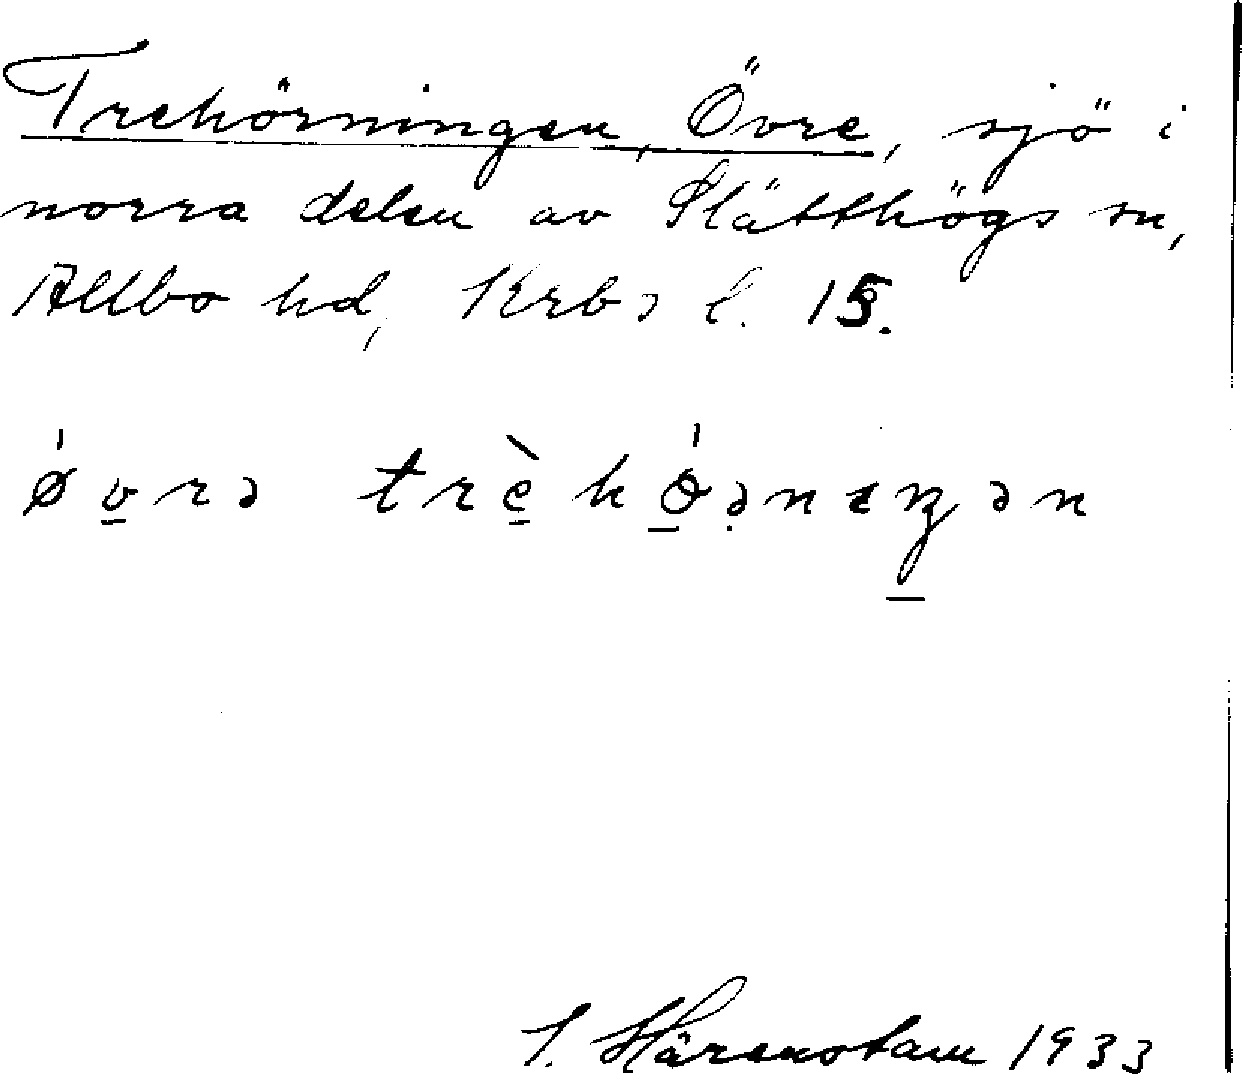 Trehörningen, Övre, sjö i
norra delen av Slätthögs sn,
Allbo hd, Krbs l. 15.
ǿv̲rə trè̲hǿ̲ə̣nɩŋ̲ən
S. Härenstam 1933